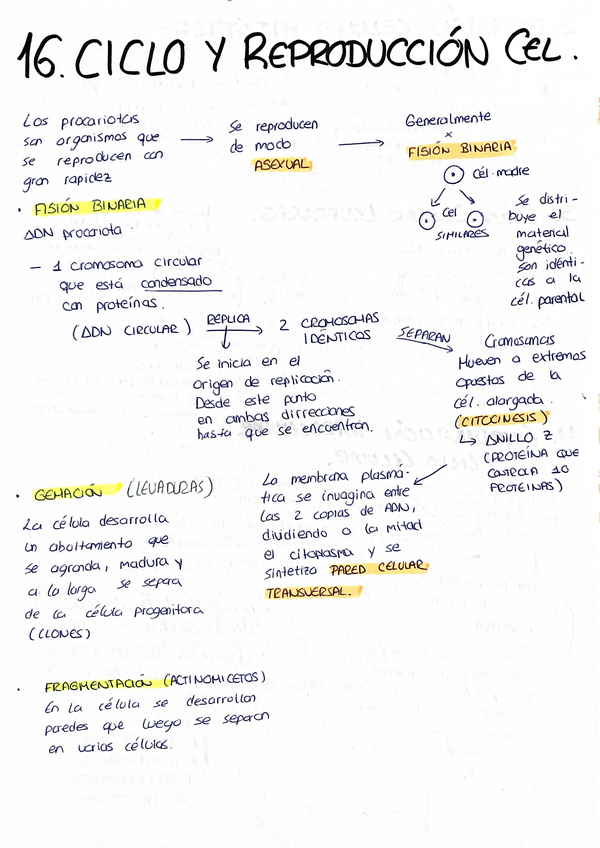 16. CICLO Y REPRODUCCIÓN CEL.
Los procariotas
son organismos que
se reproducen con
gran rapidez
Se reproducen
de modo
ASEXUAL
Generalmente
x
FISIÓN BINARIA
cél. madre
cel
SIMILARES
Se distri-
buye el
material
genético.
Son idénti-
cas a la
cél. parental
· FISIÓN BINARIA
ADN procariota.
- 1 cromosoma circular
que está condensado
con proteínas.
(ADN CIRCULAR)
REPLICA
2 CROMOSOMAS
IDÉNTICOS
SEPARAN
Cromosomas
Mueven a extremos
opuestos de la
cél. alargada.
(CITOCINESIS)
ANILLO Z
(PROTEÍNA QUE
CONTROLA 10
PROTEINAS)
Se inicia en el
origen de replicación.
Desde este punto
en ambas dirrecciones
hasta que se encuentran.
La membrana plasmá-
tica se invagina entre
las 2 copias de ADN,
dividiendo a la mitad
el citoplasma y se
sintetiza PARED CELULAR
TRANSVERSAL.
· GEMACIÓN (LEVADURAS)
La célula desarrolla
un aboltamiento que
se agranda, madura y
a lo largo se separa
de la célula progenitora
(CLONES)
· FRAGMENTACIÓN (ACTINOMICETOS)
En la célula se desarrollan
paredes que luego se separan
en varias células.